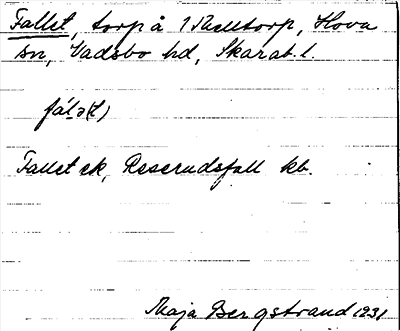 Fallet, torp å 1 Skelltorp, Hova
sn, Vadsbo hd, Skarab. l.
fálə(t)
Fallet ek, Reserudsfall kb.
Maja Bergstrand 1231